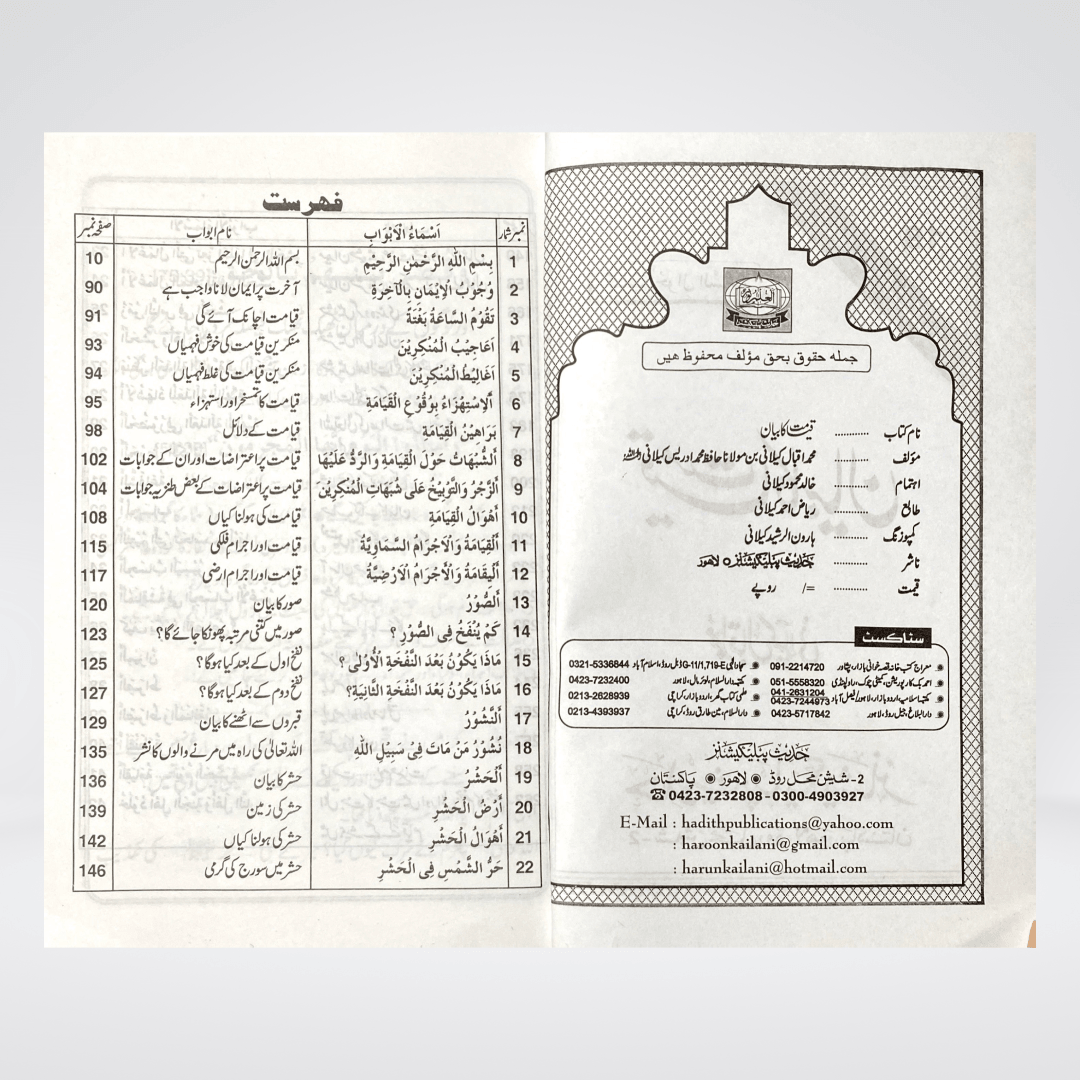 جملہ حقوق بحق مؤلف محفوظ ہیں
نام کتاب ............ قیامت کا بیان
مؤلف ............ محمد اقبال کیلانی بن مولانا حافظ محمد ادریس کیلانی
اہتمام ............ خالد محمود کیلانی
طابع ............ ریاض احمد کیلانی
کمپوزنگ ............ ہارون الرشید کیلانی
ناشر ............ حدیث پبلیکیشنز، لاہور
قیمت ............ =/ روپے
سٹاکسٹ
معراج کتب خانہ قصہ خوانی بازار، پشاور 091-2214720
احمد بک کارپوریشن، کمیٹی چوک، راولپنڈی 051-5558320
مکتبہ اسلامیہ، اردو بازار، لاہور / فیصل آباد 041-2631204 0423-7244973
دارالبلاغ، جیل روڈ، لاہور 0423-5717842
G-11/1, 719-E ڈبل روڈ، اسلام آباد 0321-5336844
مکتبہ دارالسلام، لوئر مال، لاہور 0423-7232400
علمی کتاب گھر، اردو بازار، کراچی 0213-2628939
دارالسلام، مین طارق روڈ، کراچی 0213-4393937
حدیث پبلیکیشنز
2- شیش محل روڈ ◉ لاہور ◉ پاکستان
☎ 0423-7232808 - 0300-4903927
E-Mail : hadithpublications@yahoo.com
: haroonkailani@gmail.com
: harunkailani@hotmail.com
فہرست
نمبر شمار اَسْمَاءُ الْاَبْوَابِ نام ابواب صفحہ نمبر
1 بِسْمِ اللّٰهِ الرَّحْمٰنِ الرَّحِيْمِ بسم اللہ الرحمٰن الرحیم 10
2 وُجُوْبُ الْاِيْمَانِ بِالْآخِرَةِ آخرت پر ایمان لانا واجب ہے 90
3 تَقُوْمُ السَّاعَةُ بَغْتَةً قیامت اچانک آئے گی 91
4 اَعَاجِيْبُ الْمُنْكِرِيْنَ منکرین قیامت کی خوش فہمیاں 93
5 اَغَالِيْطُ الْمُنْكِرِيْنَ منکرین قیامت کی غلط فہمیاں 94
6 اَلْاِسْتِهْزَاءُ بِوُقُوْعِ الْقِيَامَةِ قیامت کا تمسخر اور استہزاء 95
7 بَرَاهِيْنُ الْقِيَامَةِ قیامت کے دلائل 98
8 اَلشُّبُهَاتُ حَوْلَ الْقِيَامَةِ وَالرَّدُّ عَلَيْهَا قیامت پر اعتراضات اور ان کے جوابات 102
9 اَلزَّجْرُ وَالتَّوْبِيْخُ عَلٰى شُبَهَاتِ الْمُنْكِرِيْنَ قیامت پر اعتراضات کے بعض طنزیہ جوابات 104
10 اَهْوَالُ الْقِيَامَةِ قیامت کی ہولناکیاں 108
11 اَلْقِيَامَةُ وَالْاَجْرَامُ السَّمَاوِيَّةُ قیامت اور اجرام فلکی 115
12 اَلْيقَامَةُ وَالْاَجْرَامُ الْاَرْضِيَّةُ قیامت اور اجرام ارضی 117
13 اَلصُّوْرُ صور کا بیان 120
14 كَمْ يُنْفَخُ فِى الصُّوْرِ ؟ صور میں کتنی مرتبہ پھونکا جائے گا؟ 123
15 مَاذَا يَكُوْنُ بَعْدَ النَّفْخَةِ الْاُوْلٰى ؟ نفخ اول کے بعد کیا ہوگا؟ 125
16 مَاذَا يَكُوْنُ بَعْدَ النَّفْخَةِ الثَّانِيَةِ؟ نفخ دوم کے بعد کیا ہوگا؟ 127
17 اَلنُّشُوْرُ قبروں سے اٹھنے کا بیان 129
18 نُشُوْرُ مَنْ مَاتَ فِىْ سَبِيْلِ اللّٰهِ اللہ تعالیٰ کی راہ میں مرنے والوں کا نشر 135
19 اَلْحَشْرُ حشر کا بیان 136
20 اَرْضُ الْحَشْرِ حشر کی زمین 139
21 اَهْوَالُ الْحَشْرِ حشر کی ہولناکیاں 142
22 حَرُّ الشَّمْسِ فِى الْحَشْرِ حشر میں سورج کی گرمی 146